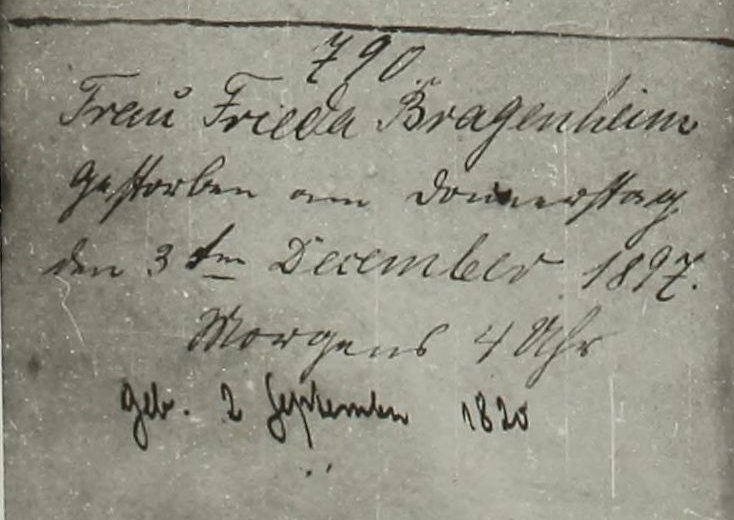 790.
Frau Frieda Bragenheim
gestorben am Donnerstag
den 3ten December 1897.
Morgens 4 Uhr
geb. 2 September 1820